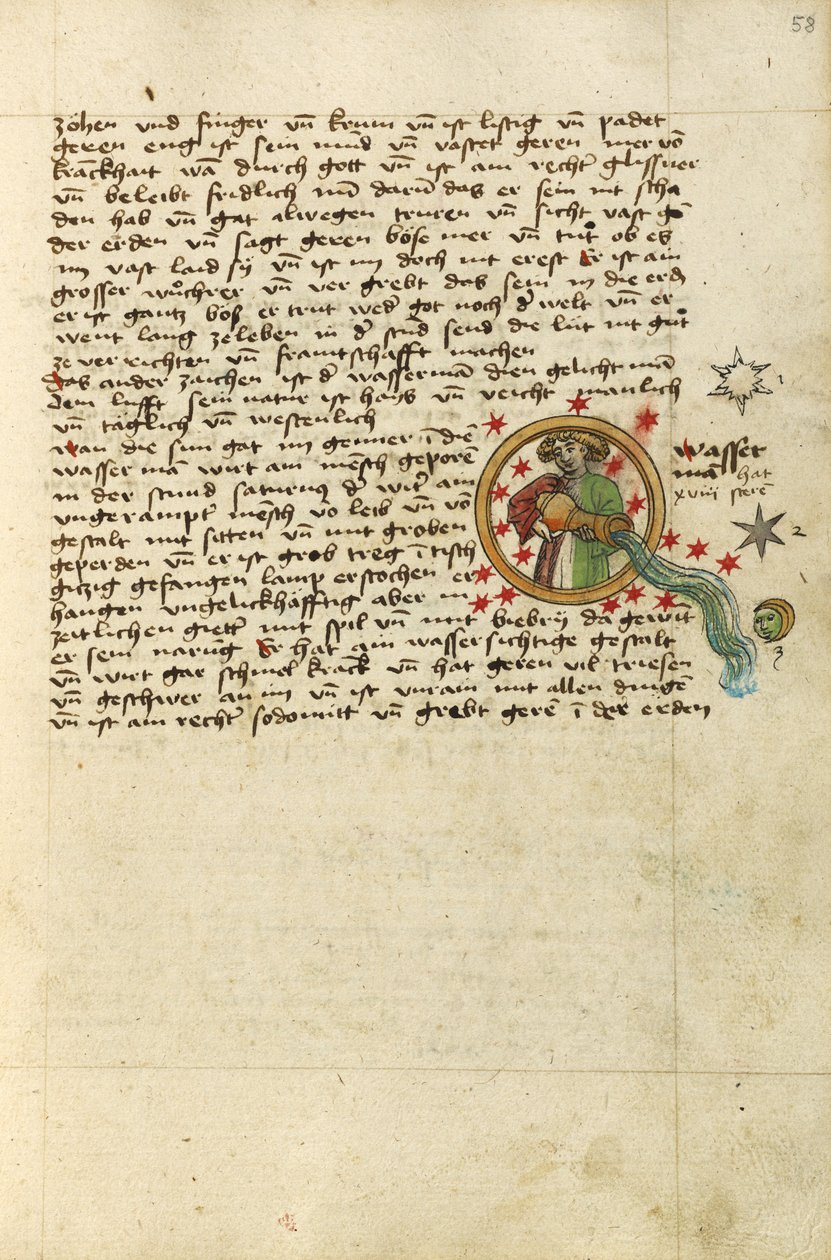 58
zöhen und finger vn̄ krum vn̄ ist listig vn̄ padet
geren eng ist sein mund vn̄ vastet geren mer vō
kranckhait wā durch gott vn̄ ist am rechtr glissner
vn̄ beleibt fridlich nun darū das er sein nit scha
den hab vn̄ gat alwegen truren vn̄ sicht vast gē
der erden vn̄ sagt geren böse mer vn̄ tut ob es
im vast land sy vn̄ ist im doch nit erest Er ist ain
grosser wůchrer vn̄ ver grebt das sein in die erd
er ist gantz bös er trut wed got noch d welt vn̄ er
went lang ze leben in d stund send die lüt nit gůt
ze ver richten vn̄ frantschafft machen
das ander zaichen ist d wassermā dien gelicht mā
dem lufft sein natur ist hays vn̄ veicht manlich
vn̄ täglich vn̄ westenlich
wan die sun gat im genner ī die
wasser mā wirt ain mēsch geporē
in der stund saturnus d wirt ain
ungerampter mēsch vo leib vn̄ vō
gestalt mit sitten vn̄ mit groben
geperden vn̄ er ist grob treg ī tisch
gitzig gefangen lamp erstochen er
hangen ungelickhäfftig aber in
zeitlichen giettr mit spil vn̄ mit biebry da gewīt
er sein narūg Er hat ain wassersichtige gestalt
vn̄ wirt gar schnel kranck vn̄ hat geren vil triesen
vn̄ geschwer an im vn̄ ist unrain mit allen dingē
vn̄ ist am rechtr sodomitt vn̄ grebt gerē ī der erden
wasser
mā hat
xviii sterē
1
2
3